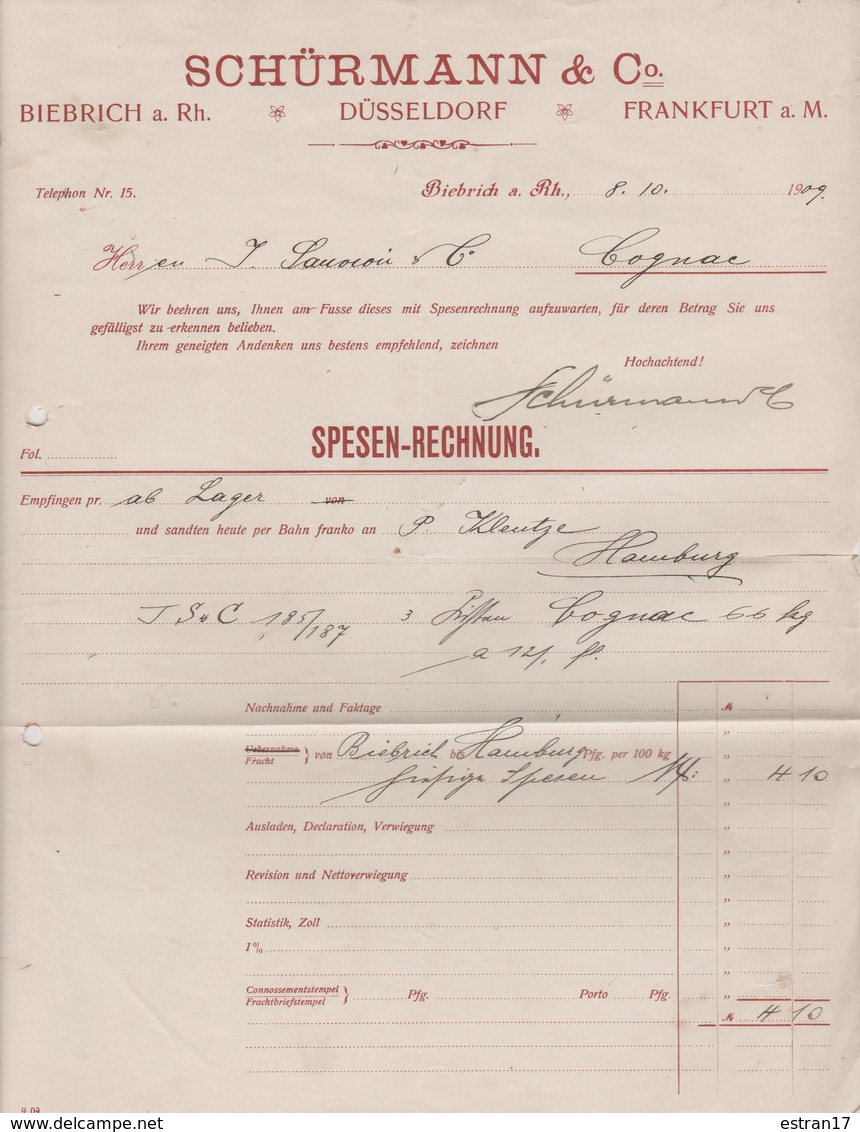 SCHÜRMANN & Co.
BIEBRICH a. Rh. DÜSSELDORF FRANKFURT a. M.
Telephon Nr. 15. Biebrich a. Rh., 8. 10. 1909.
Herren J. & Co Cognac
Wir beehren uns, Ihnen am Fusse dieses mit Spesenrechnung aufzuwarten, für deren Betrag Sie uns
gefälligst zu erkennen belieben.
Ihrem geneigten Andenken uns bestens empfehlend, zeichnen
Hochachtend!
Schürmann & C
Fol. SPESEN-RECHNUNG.
Empfingen pr. ab Lager von
und sandten heute per Bahn franko an P. Klentze
Hamburg
J S & C 185/187 3 Kisten Cognac 66 kg
a 12/1 fl.
Nachnahme und Faktage M
"
Uebernahme
Fracht } von Biebrich bis Hamburg Pfg. per 100 kg "
hiesige Spesen M: " 4 10
"
Ausladen, Declaration, Verwiegung "
"
Revision und Nettoverwiegung "
"
Statistik, Zoll "
1% "
"
Connossementstempel
Frachtbriefstempel } Pfg. Porto Pfg. "
M 4 10
9.09
delcampe.net
estran17